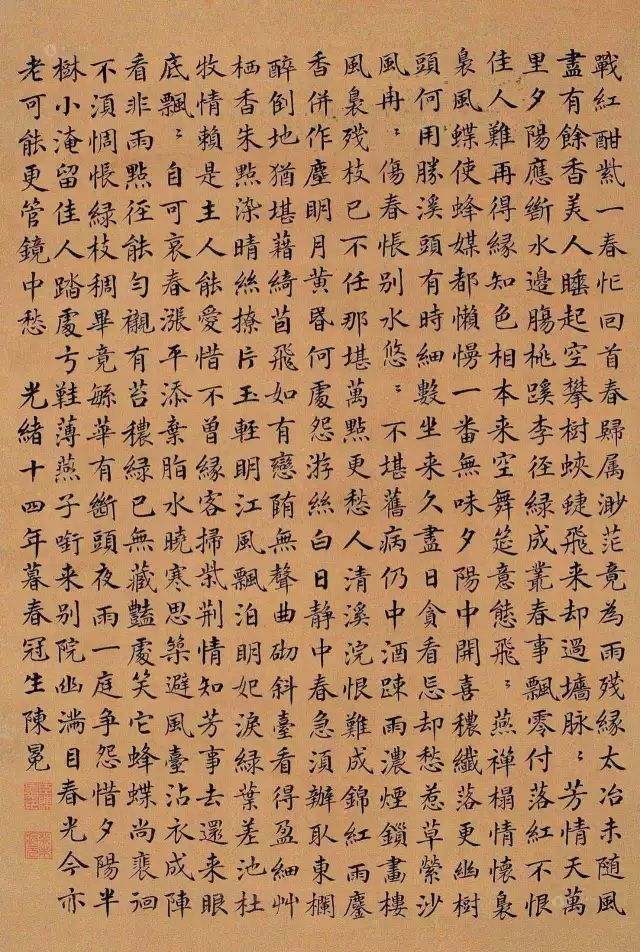 戰紅酣紫一春忙回首春歸属渺茫竟為雨残緣太冶未随風
盡有餘香美人睡起空攀樹蛺蜨飛来却過墻脉〻芳情天萬
里夕陽應斷水邊腸桃蹊李徑緑成叢春事飄零付落紅不恨
佳人難再得緣知色相本来空舞筵意態飛〻燕禅榻情懷裊
裊風蝶使蜂媒都懶慢一番無味夕陽中開喜穠纖落更幽樹
頭何用勝溪頭有時細數坐来久盡日貪看忘却愁惹草縈沙
風冉〻傷春悵别水悠〻不堪舊病仍中酒踈雨濃煙鎖畫樓
風裊残枝已不任那堪萬點更愁人清溪浣恨難成錦紅雨鏖
香併作塵明月黄昏何處怨游絲白日静中春急須辦取東欄
醉倒地猶堪藉綺茵飛如有戀随無聲曲砌斜臺看得盈細艸
栖香朱點染晴絲撩片玉輕明江風飄泊明妃淚緑葉差池杜
牧情賴是主人能愛惜不曾緣客掃柴荆情知芳事去還来眼
底飄〻自可哀春漲平添棄脂水曉寒思築避風臺沾衣成陣
看非雨點徑能勻襯有苔穠緑已無藏豔處笑它蜂蝶尚裵徊
不須惆悵緑枝稠畢竟緐華有斷頭夜雨一庭争怨惜夕陽半
楙小淹留佳人踏處弓鞋薄燕子銜来别院幽满目春光今亦
老可能更管鏡中愁 光緒十四年暮春冠生陳冕